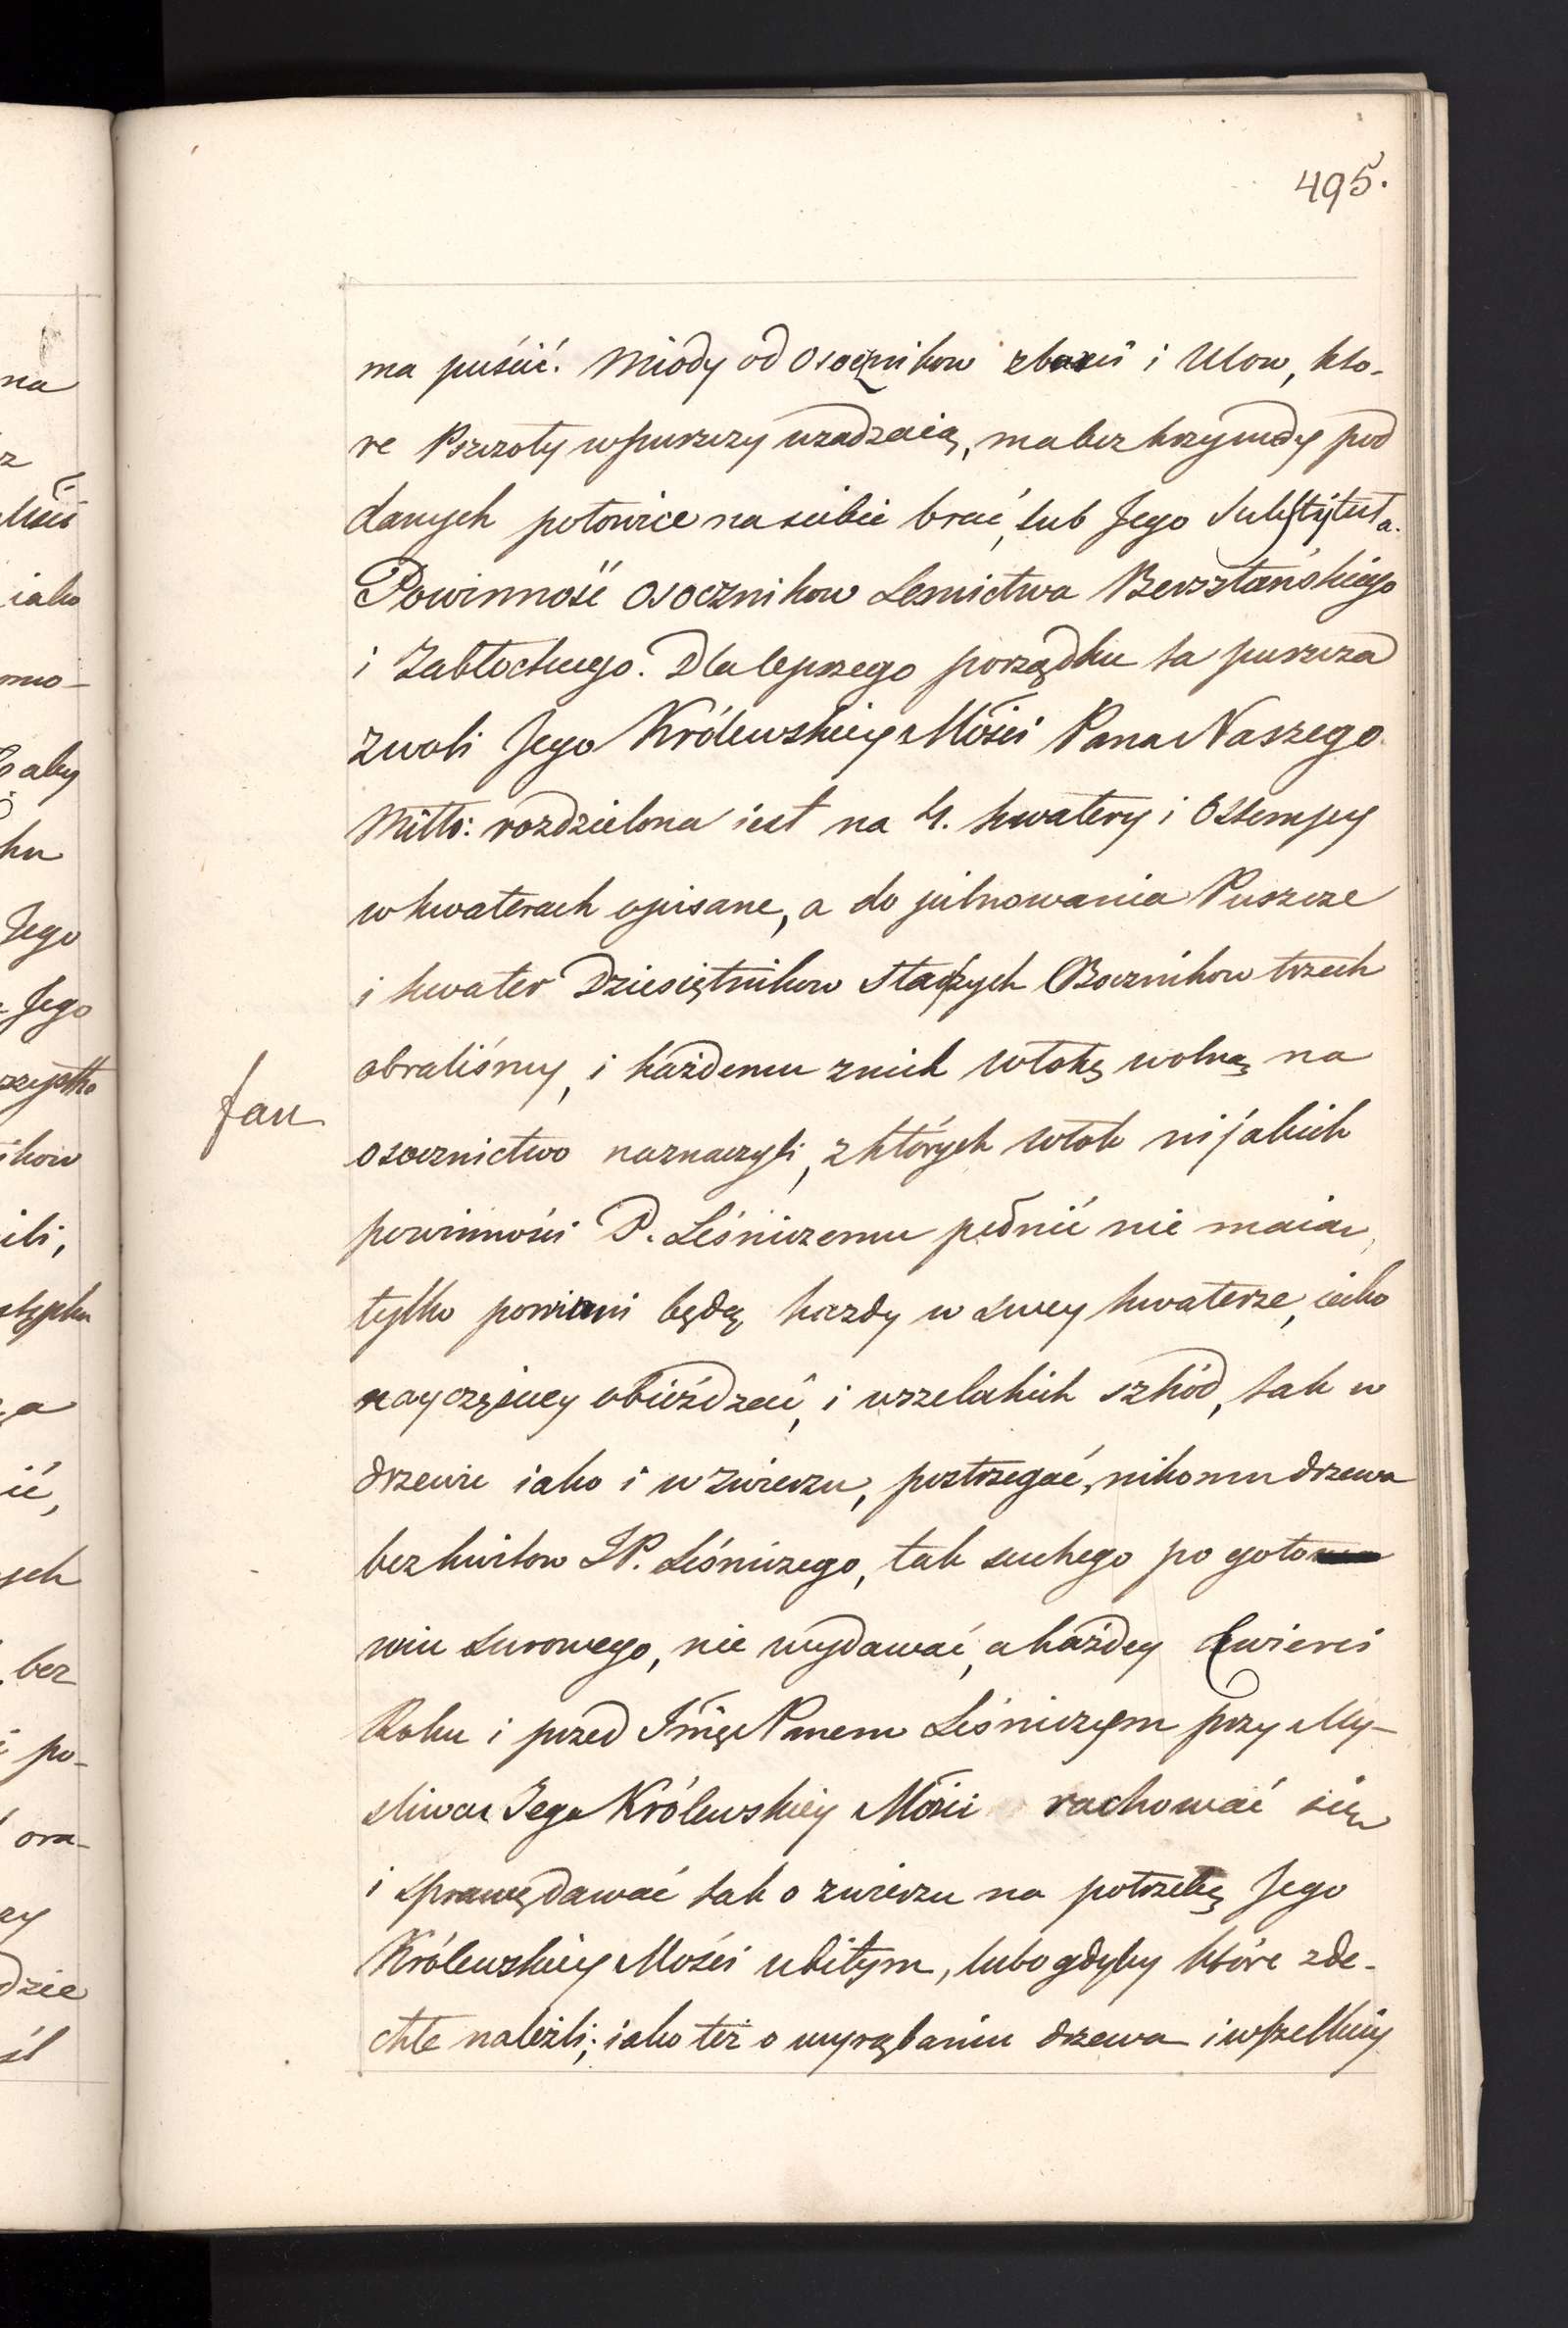 495.
ma puścić. Miody od Osoczników zbarci i Ulow, kto-
re Pszczoły wpuszczy uradzaią, ma bez krzywdy pod
danych połowice na siebie brać, lub Jego Substytuta.
Powinność Osocznikow Lesnictwa Bersztańskiego
i Zabłockiego. Dla lepszego porządku ta puszcza
zwoli Jego Królewskiey Mości Pana Naszego
Miłło: rozdzielona iest na 4. kwatery i Ostempy
w kwaterach opisane, a do pilnowania Puszcze
i kwater Dziesiętnikow Starszych Osocznikow trzech
obraliśmy, i każdemu znich włokę wolną na
osocznictwo naznaczyli, z których włok nijakich
powinności P. Leśniczemu pełnić nie maią,
tylko powinni będą każdy w swey kwaterze, iako
nayczęściey obieźdzać, i wszelakich szkód, tak w
drzewie iako i w zwierzu, postrzegać, nikomu drzewa
bez kwitow JP. Leśniczego, tak suchego po goto
wiu surowego, nie wydawać, a każdey Ćwierci
Roku i przed Jmię Panem Leśniczym przy My-
śliwcu Jego Królewskiey Mości rachować się
i sprawę dawać tak o zwierzu na potrzebę Jego
Królewskiey Mości ubitym, lubo gdyby które zde-
chłe naleźli; iako też o wyrąbaniu drzewa i wszelkiey
fau
na
iako
aby
ku
Jego
Jego
ikow
ili,
ić,
bez
i po-
ora-
dzie